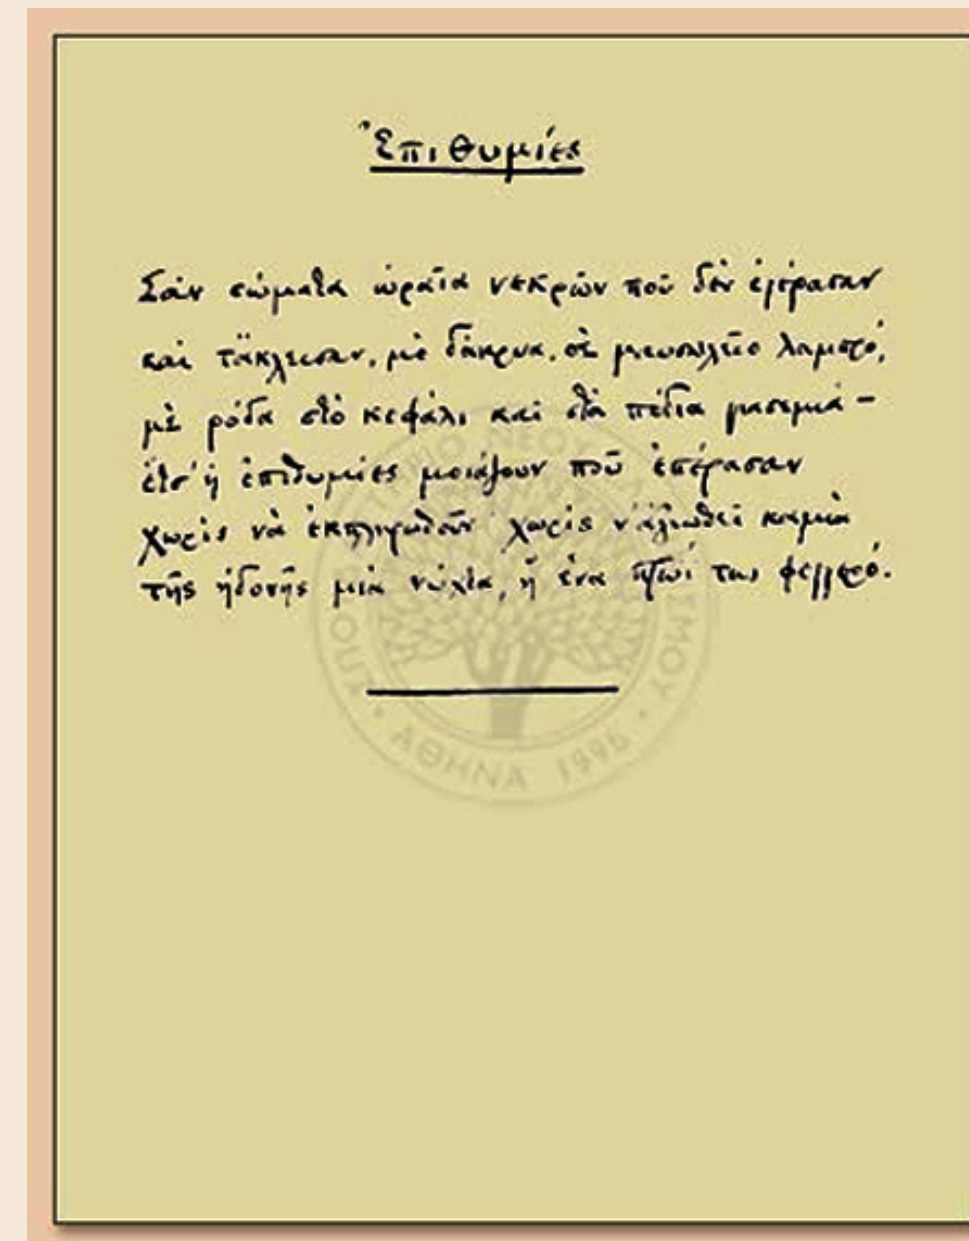 Ἐπιθυμίες
Σὰν σώματα ὡραῖα νεκρῶν ποῦ δὲν ἐγέρασαν
καὶ τἄκλεισαν, μὲ δάκρυα, σὲ μαυσωλεῖο λαμπρό,
μὲ ρόδα στὸ κεφάλι καὶ στὰ πόδια γιασεμιὰ —
ἔτσ' ἡ ἐπιθυμίες μοιάζουν ποῦ ἐπέρασαν
χωρὶς νὰ ἐκπληρωθοῦν· χωρὶς ν' ἀξιωθεῖ καμιὰ
τῆς ἡδονῆς μιὰ νύχτα, ἢ ἕνα πρωΐ της φεγγερό.
ΝΕΟΥ
ΣΜΟΥ
ΑΘΗΝΑ 1996